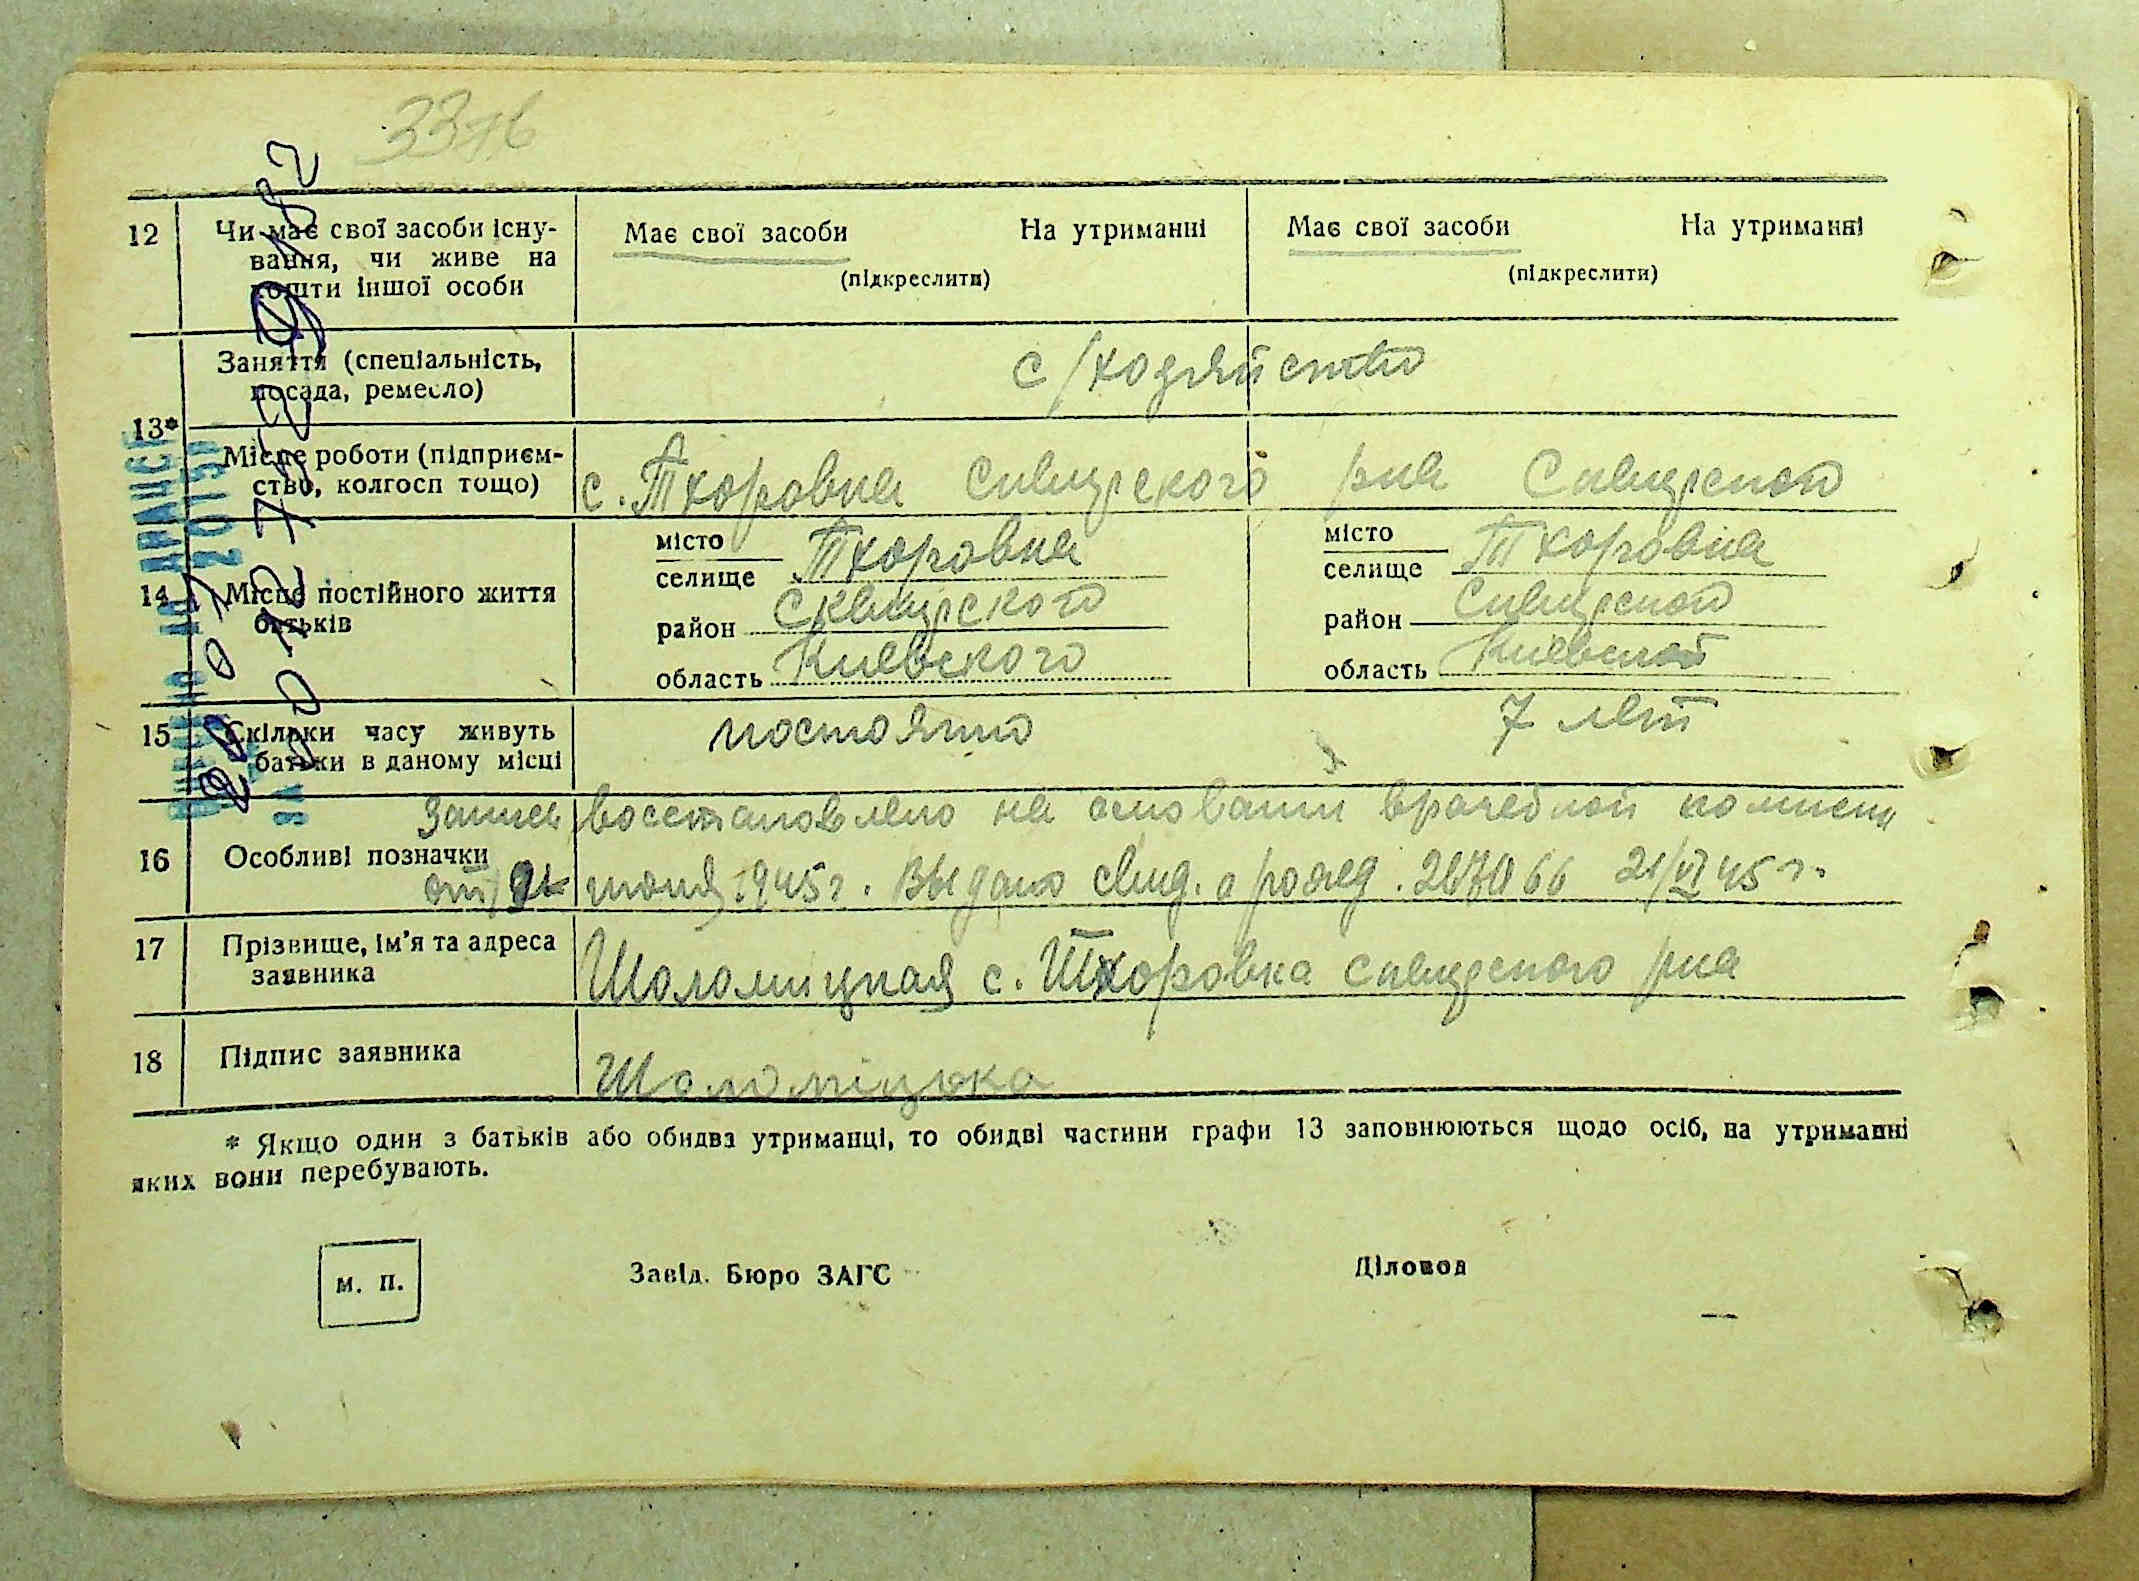 12 Чи має свої засоби існу- Має свої засоби На утриманні Має свої засоби На утриманні
вання, чи живе на
кошти іншої особи (підкреслити) (підкреслити)
Заняття (спеціальність,
посада, ремесло) с/хозяйство
13*
Місце роботи (підприєм-
ство, колгосп тощо) с. Тхоровка Сквирского р-на Сквирской
місто Тхоровка місто Тхоровка
селище селище
14 Місце постійного життя
батьків район Сквирского район Сквирской
область Киевского область Киевской
15 Скільки часу живуть постоянно 7 лет
батьки в даному місці
Запись восстановлено на основании врачебной комиссии
16 Особливі позначки
от июня 1945 г. Выдано свид. о рожд. 21/VI 45 г.
17 Прізвище, ім'я та адреса
заявника Шоломицкая с. Тхоровка Сквирского р-на
18 Підпис заявника Шоломіцька
* Якщо один з батьків або обидва утриманці, то обидві частини графи 13 заповнюються щодо осіб, на утриманні
яких вони перебувають.
м. п. Завід. Бюро ЗАГС Діловод